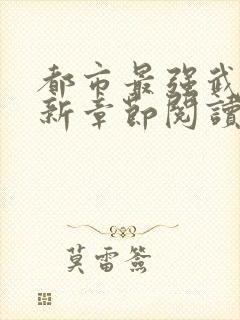 都市最强武
新章節閱讀
莫雷簽